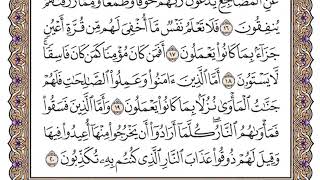 عَنِ ٱلْمَضَاجِعِ يَدْعُونَ رَبَّهُمْ خَوْفًا وَطَمَعًا وَمِمَّا رَزَقْنَٰهُمْ
يُنفِقُونَ ١٦ فَلَا تَعْلَمُ نَفْسٌ مَّآ أُخْفِىَ لَهُم مِّن قُرَّةِ أَعْيُنٍ
جَزَآءًۢ بِمَا كَانُوا۟ يَعْمَلُونَ ١٧ أَفَمَن كَانَ مُؤْمِنًا كَمَن كَانَ فَاسِقًا
لَّا يَسْتَوُۥنَ ١٨ أَمَّا ٱلَّذِينَ ءَامَنُوا۟ وَعَمِلُوا۟ ٱلصَّٰلِحَٰتِ فَلَهُمْ
جَنَّٰتُ ٱلْمَأْوَىٰ نُزُلًۢا بِمَا كَانُوا۟ يَعْمَلُونَ ١٩ وَأَمَّا ٱلَّذِينَ فَسَقُوا۟
فَمَأْوَىٰهُمُ ٱلنَّارُ كُلَّمَآ أَرَادُوٓا۟ أَن يَخْرُجُوا۟ مِنْهَآ أُعِيدُوا۟ فِيهَا
وَقِيلَ لَهُمْ ذُوقُوا۟ عَذَابَ ٱلنَّارِ ٱلَّذِى كُنتُم بِهِۦ تُكَذِّبُونَ ٢٠